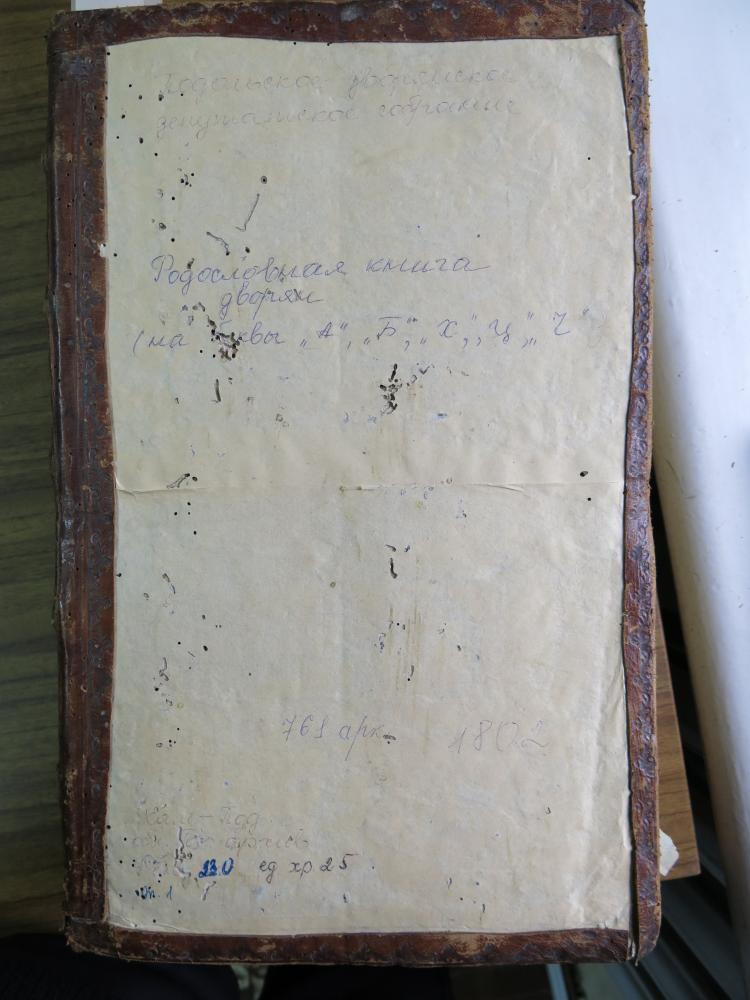 Подольское дворянское
депутатское собрание
Родословная книга
дворян
(на буквы „А“, „Б“, „Х“, „Ц“, „Ч“
761 арк. 1802
Кам-Под
архив
230 ед хр 25
оп. 1